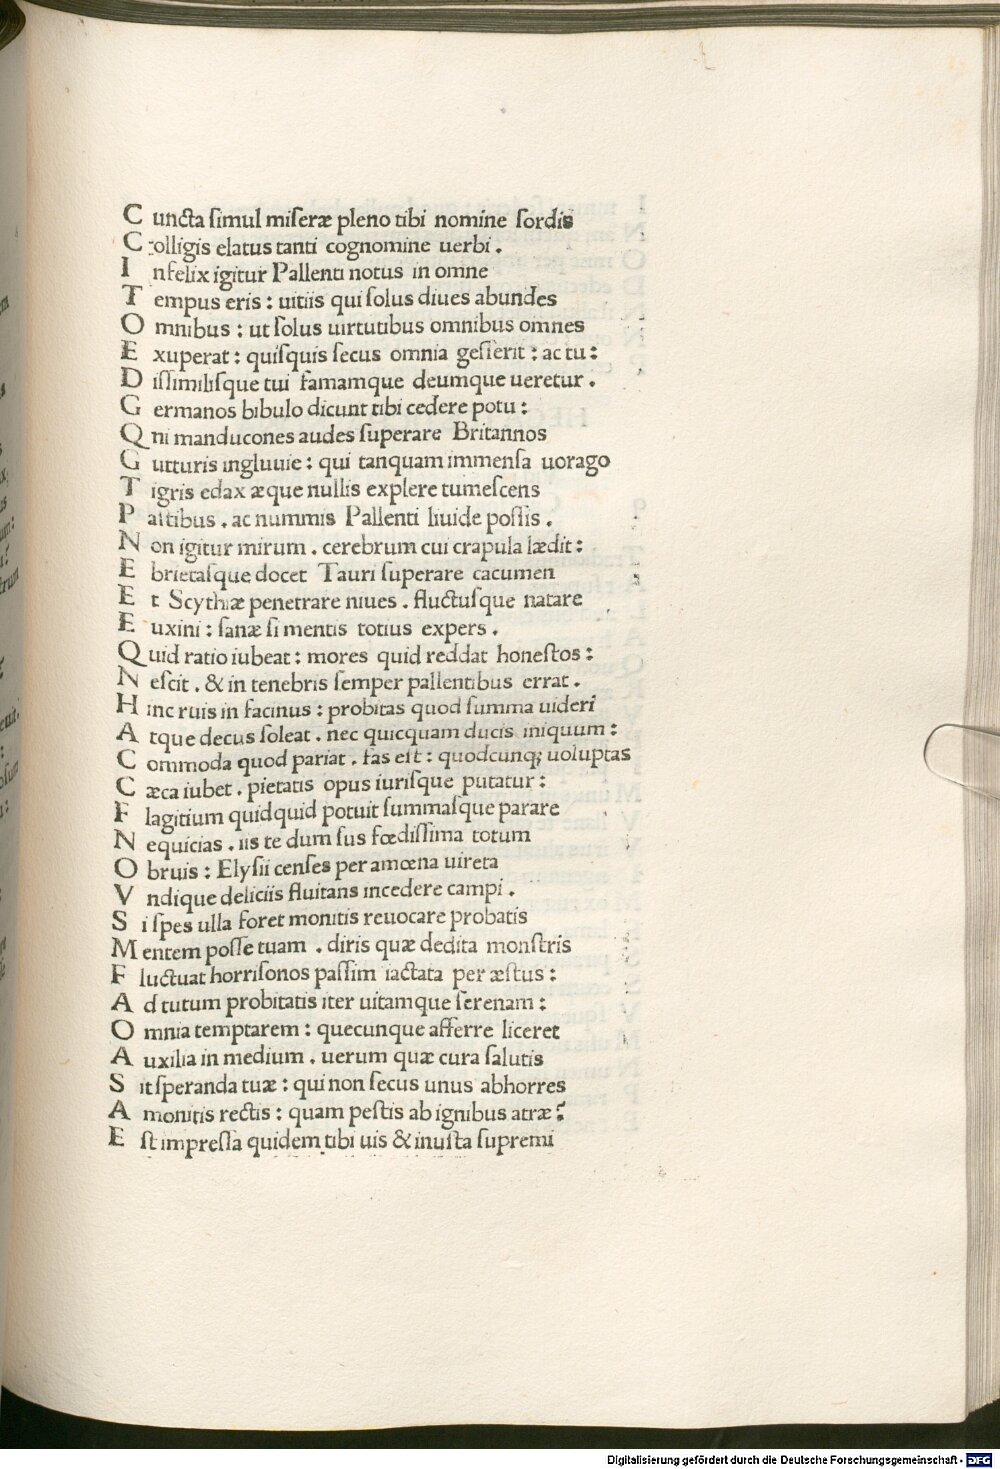 C uncta ſimul miſeræ pleno tibi nomine ſordis
C olligis elatus tanti cognomine uerbi .
I nfelix igitur Pallenti notus in omne
T empus eris : uitiis qui ſolus diues abundes
O mnibus : ut ſolus uirtutibus omnibus omnes
E xuperat : quiſquis ſecus omnia geſſerit : ac tu :
D iſſimiliſque tui famamque deumque ueretur .
G ermanos bibulo dicunt tibi cedere potu :
Q ni manducones audes ſuperare Britannos
G utturis ingluuie : qui tanquam immenſa uorago
T igris edax æque nullis explere tumeſcens
P aſtibus . ac nummis Pallenti liuide poſſis .
N on igitur mirum . cerebrum cui crapula lædit :
E brietaſque docet Tauri ſuperare cacumen
E t Scythiæ penetrare niues . fluctuſque natare
E uxini : ſanæ ſi mentis totius expers .
Q uid ratio iubeat : mores quid reddat honeſtos :
N eſcit . & in tenebris ſemper pallentibus errat .
H inc ruis in facinus : probitas quod ſumma uideri
A tque decus ſoleat . nec quicquam ducis iniquum :
C ommoda quod pariat . fas eſt : quodcunq; uoluptas
C æca iubet . pietatis opus iuriſque putatur :
F lagitium quidquid potuit ſummaſque parare
N equicias . iis te dum ſus fœdiſſima totum
O bruis : Elyſii cenſes per amœna uireta
V ndique deliciis fluitans incedere campi .
S i ſpes ulla foret monitis reuocare probatis
M entem poſſe tuam . diris quæ dedita monſtris
F luctuat horriſonos paſſim iactata per æſtus :
A d tutum probitatis iter uitamque ſerenam :
O mnia temptarem : quecunque afferre liceret
A uxilia in medium . uerum quæ cura ſalutis
S it ſperanda tuæ : qui non ſecus unus abhorres
A monitis rectis : quam peſtis ab ignibus atræ ?
E ſt impreſſa quidem tibi uis & inuſta ſupremi
Digitalisierung gefördert durch die Deutsche Forschungsgemeinschaft - DFG